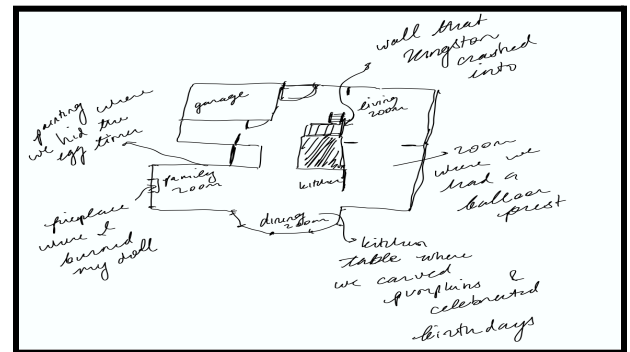 wall that
Kingston
crashed
into
painting where
we hid the
egg timer
garage
living
room
room
where we
had a
balloon
family
room
kitchen
fireplace
where I
burned
my doll
dining
room
kitchen
table where
we carved
pumpkins &
celebrated
birthdays